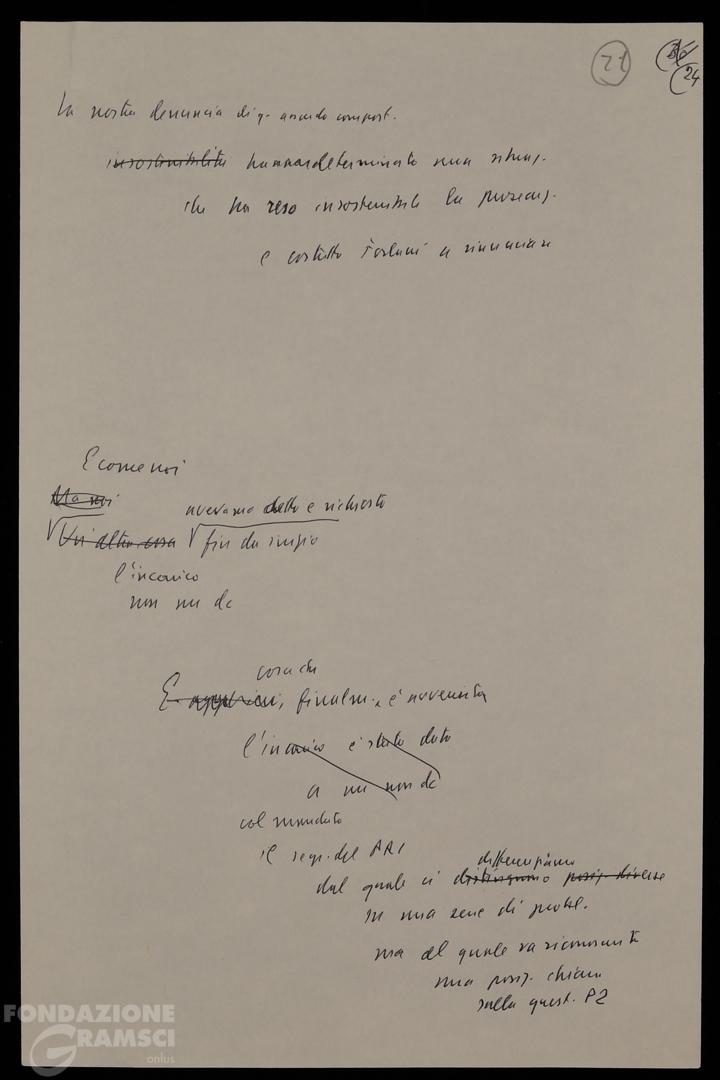 21
24
La nostra denuncia di q. assurdo comport.
insostenibilità hanno determinato una situaz.
che ha reso insostenibile la posizione.
e costretto Forlani a rinunciare
E come noi
Ma noi
avevamo detto e richiesto
Un'altra cosa fin da inizio
l'incarico
non un dc
cosa che
E finalm. è avvenuta
l'incarico è stato dato
a un non dc
col mandato
il segr. del PRI
differenziamo
dal quale ci distinguono posiz. diverse
in una serie di probl.
ma al quale va riconosciuta
una posiz. chiara
sulla quest. P2
FONDAZIONE
GRAMSCI
onlus